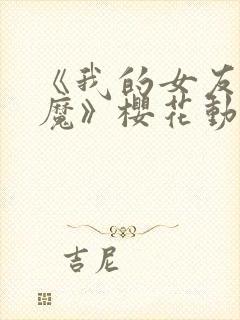 《我的女友
魔》櫻花動
吉尼